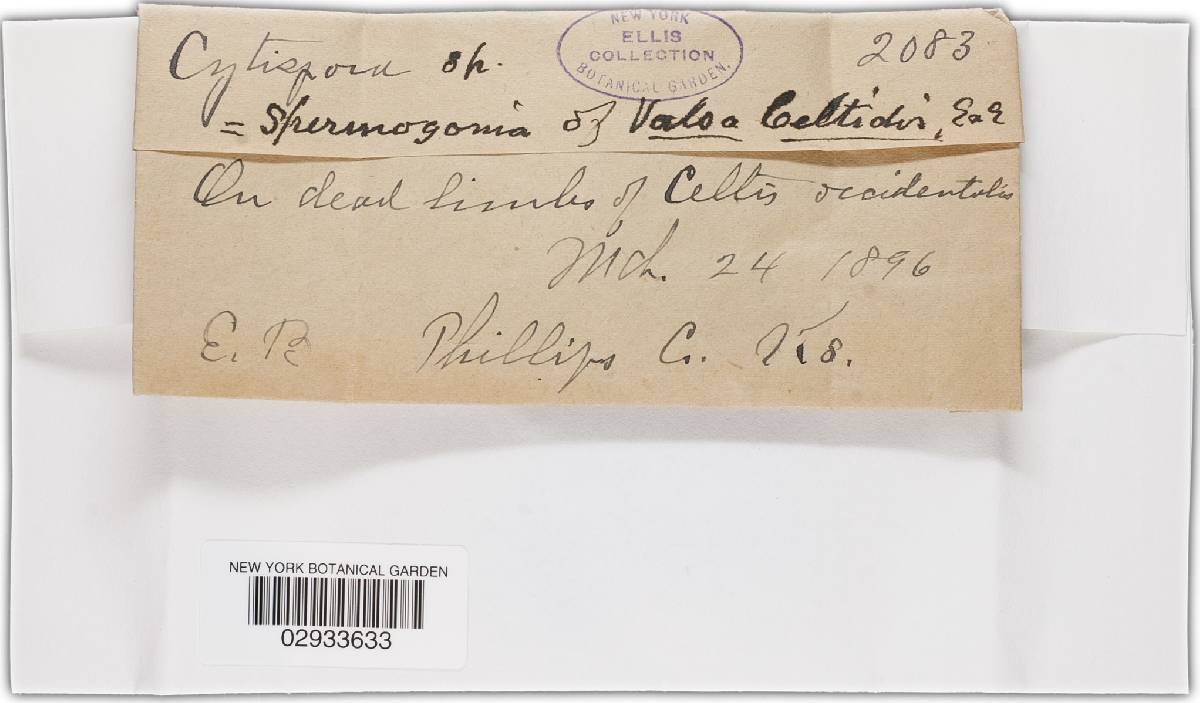 Cytispora sp. 2083
NEW YORK
ELLIS
COLLECTION
BOTANICAL GARDEN.
= Spermogonia of Valsa Celtidis, E&E
On dead limbs of Celtis occidentalis
Mch. 24 1896
E. B Phillips Co. Ks.
NEW YORK BOTANICAL GARDEN
02933633